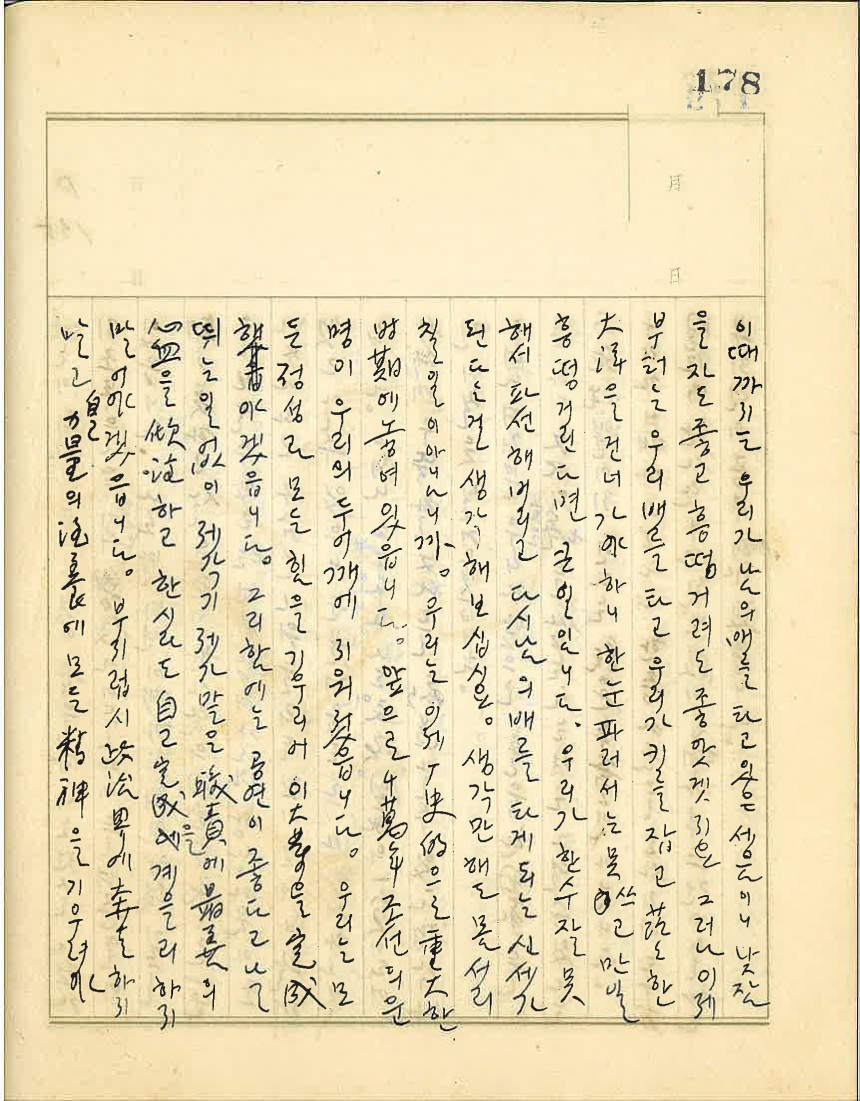 178
月
日
이때까지는 우리가 남의 배를 타고 있은 셈음이니 낮잠
을 자도 좋고 흥떵거려도 좋앗겟지요 그러나 이제
부터는 우리 배를 타고 우리가 키를 잡고 茫々한
大洋을 건너가야 하니 한눈 파러서는 못쓰고 만일
흥떵거린다면 큰일입니다. 우리가 한 수 잘못
해서 파선해버리고 다시 남의 배를 타게 되는 신세가
된다는 걸 생각해보십시요. 생각만 해도 몸서리
칠 일이 아닙니까. 우리는 이제 歷史的으로 重大한
時期에 놓여 있읍니다. 앞으로 十萬年 조선의 운
명이 우리의 두 어깨에 지워졌읍니다. 우리는 모
든 정성과 모든 힘을 기우리어 이 大業을 完成
해야겟읍니다. 그리함에는 공연이 좋다고 날
뛰는 일 없이 제각기 제가 맡은 職責에 最善의
心血을 傾注하고 한시도 自己完成을 게을리 하지
말어야겟읍니다. 부지럽시 政治界에 奔走하지
말고 自己 力量의 涵養에 모든 精神을 기우려야